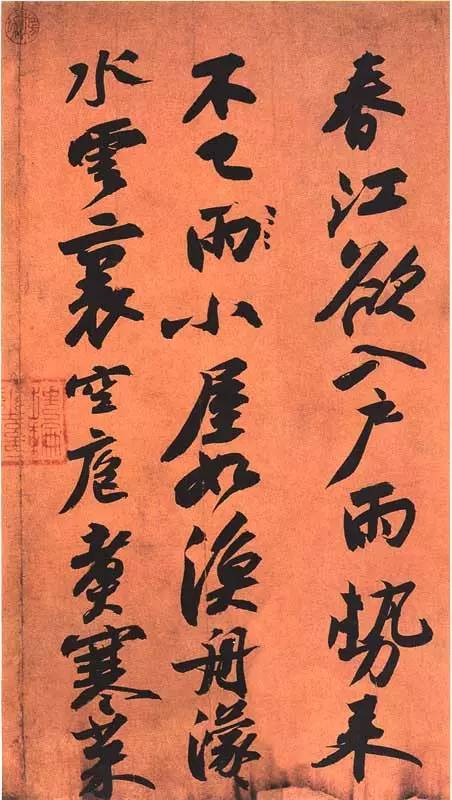 春江欲入戶雨勢來
不已雨小屋如漁舟濛々
水雲裏空庖煮寒菜